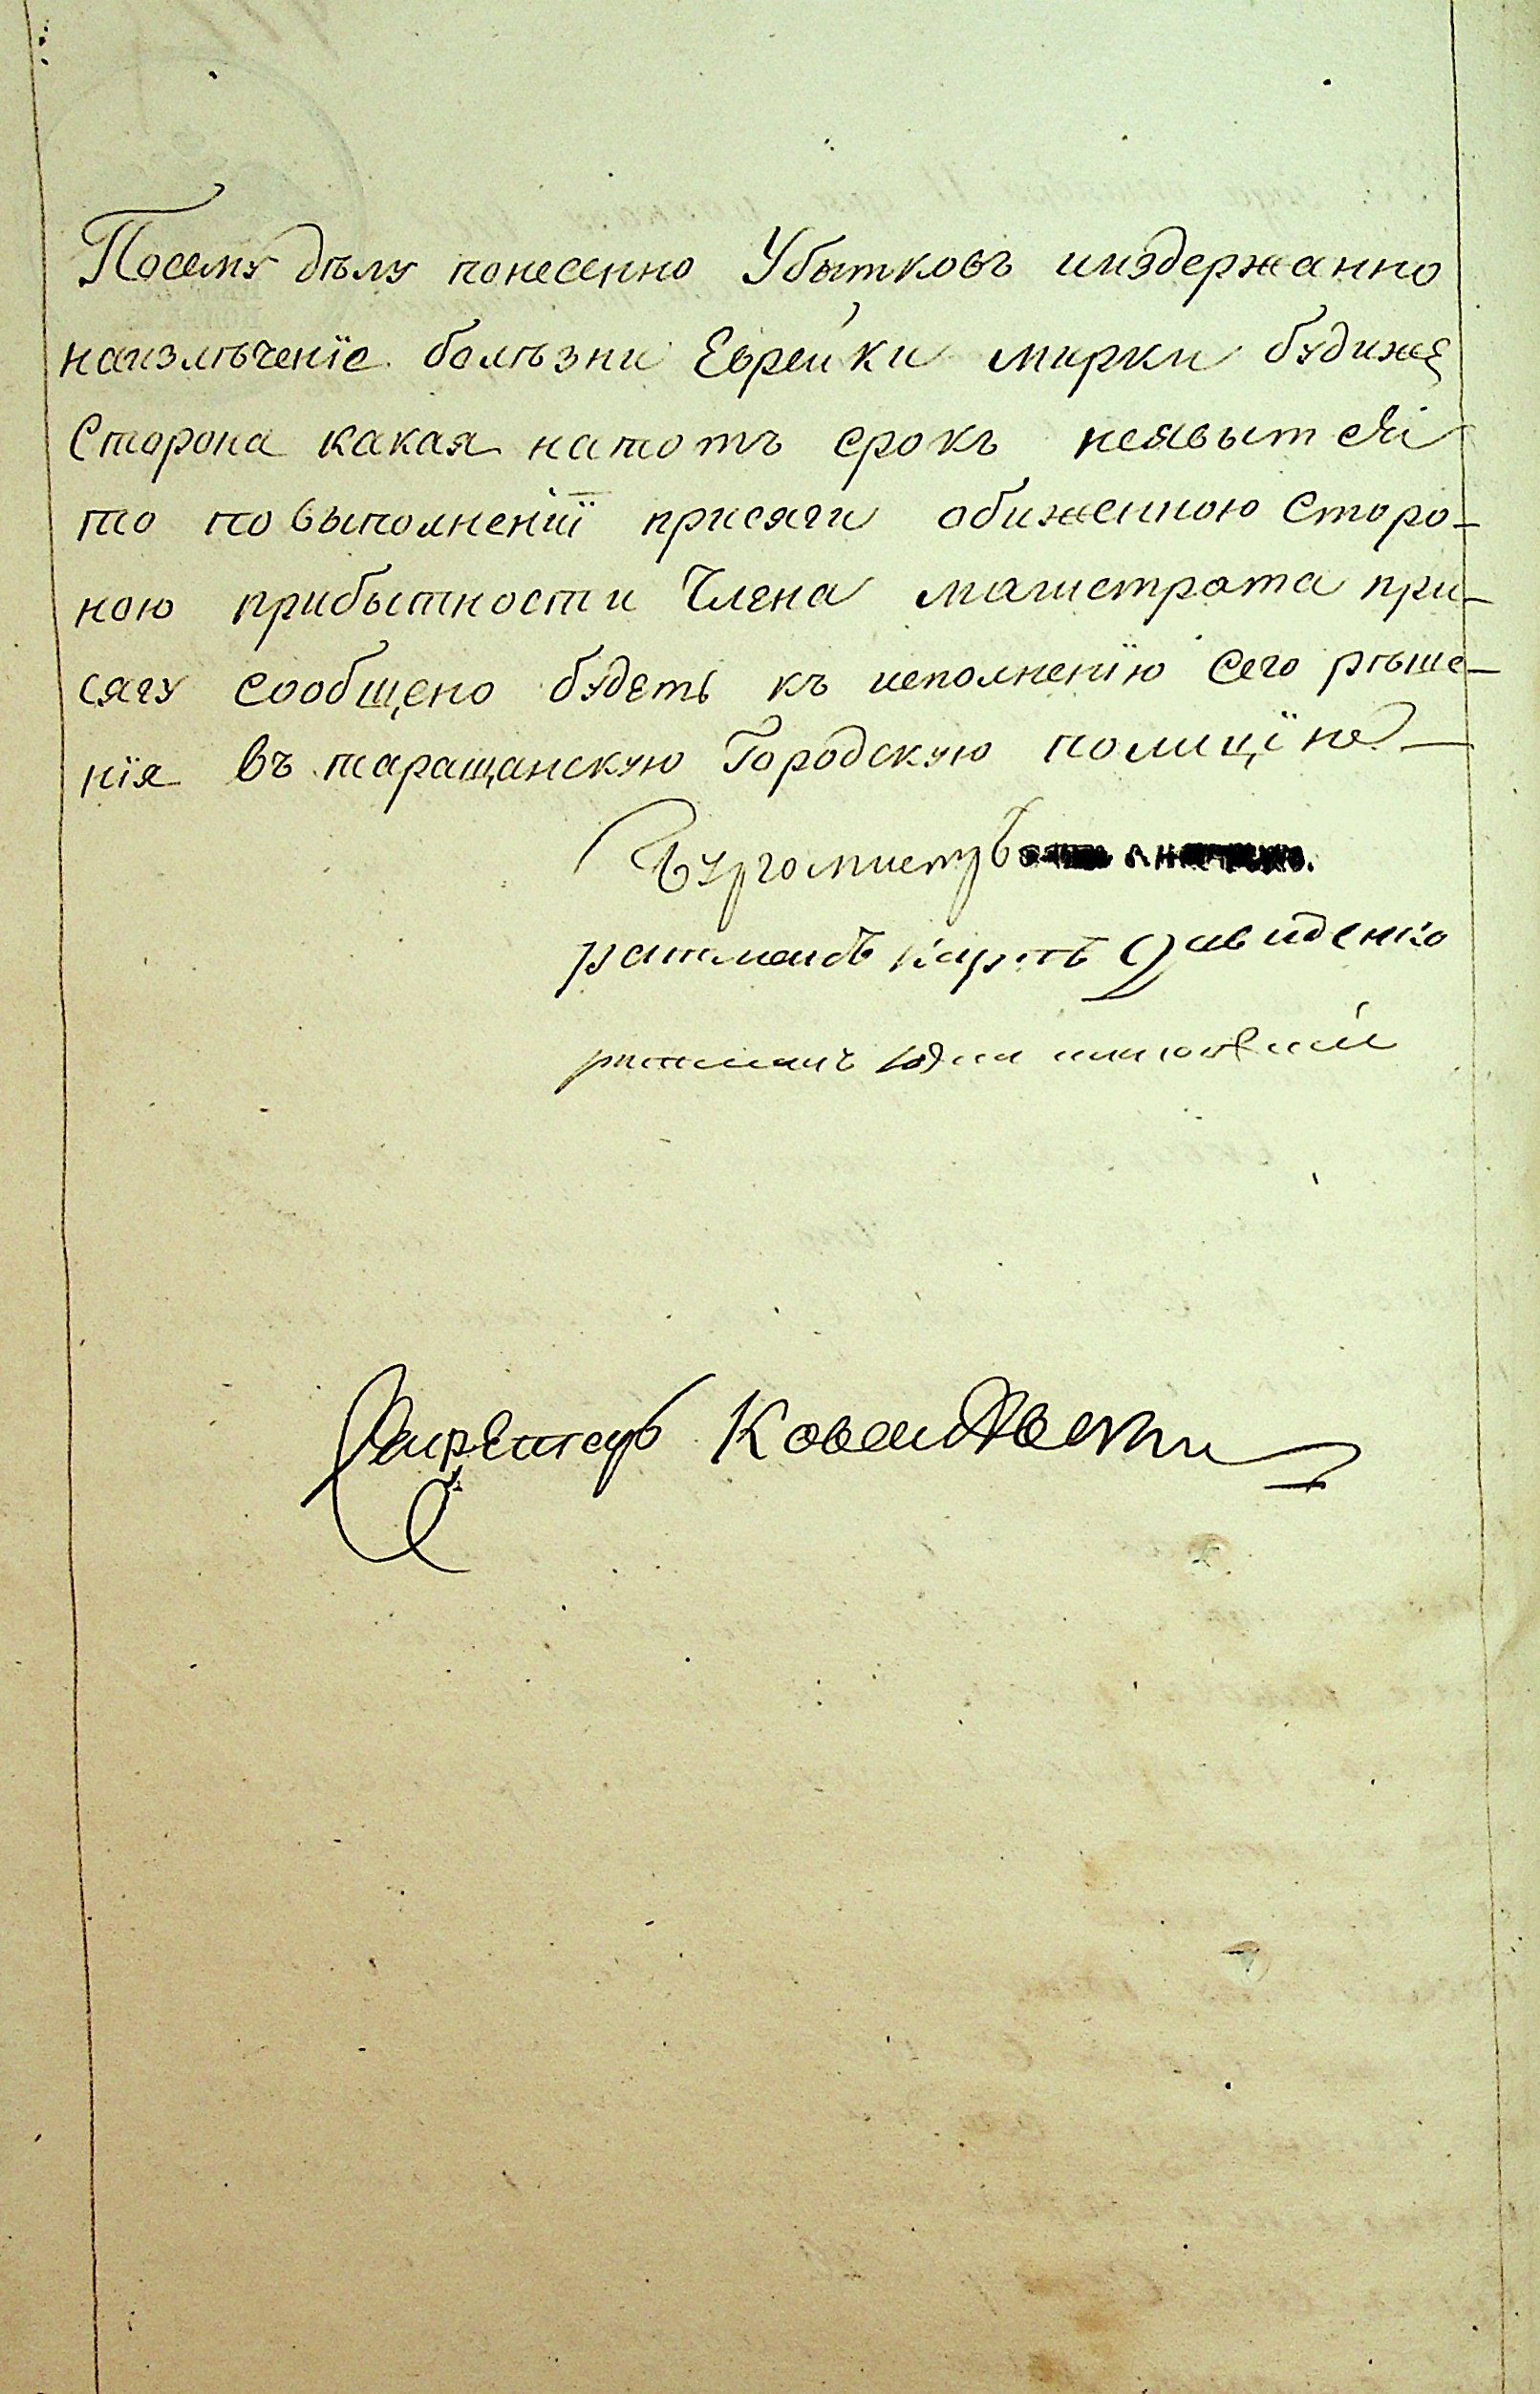 Посему дѣлу понесенно Убытковъииздержанно
наизлѣченїе болѣзни Еврейки мирки будиже
Сторона какая натотъ срокъ неявытся
то повыполненїї присяги обиженною Сторо-
ною прибытности Члена магистрата при-
сягу сообщено будетъ къ исполненїю Сего рѣше-
нїя въ таращанскую Городскую полицїю
Бургомистръ
ратманъ Карпъ Давиденко
ратманъ
Секретарь